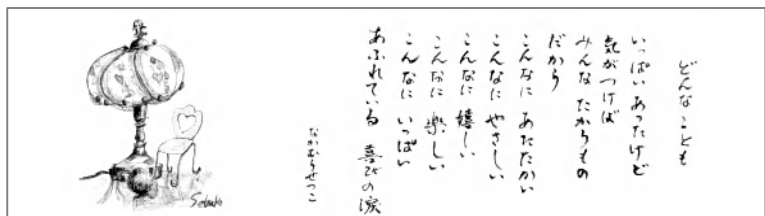 どんなことも
いっぱいあったけど
気がつけば
みんな たからもの
だから
こんなに あたたかい
こんなに やさしい
こんなに 嬉しい
こんなに 楽しい
こんなに いっぱい
あふれている 喜びの涙
なかむらせつこ
Setsuko